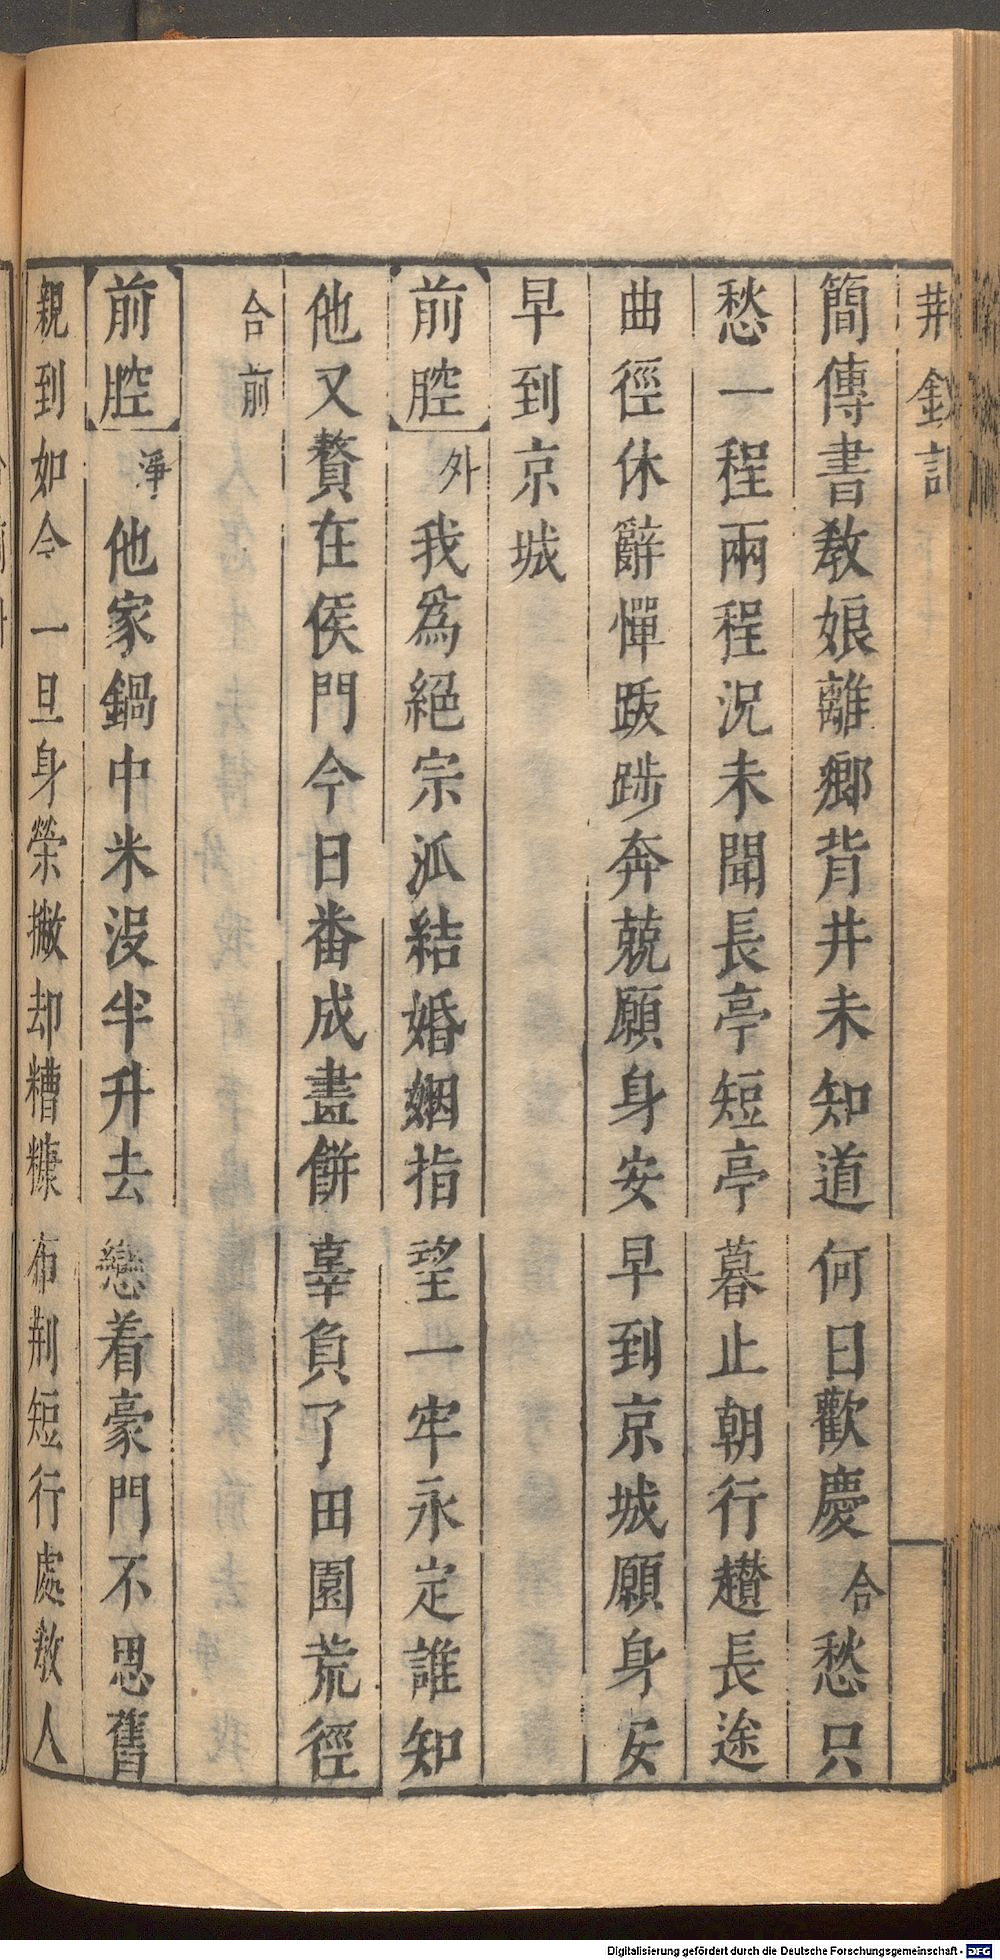 荆釵記
簡傳書敎娘離鄉背井未知道何日歡慶合愁只
愁一程兩程況未聞長亭短亭暮止朝行趲長途
曲徑休辭憚跋踄奔兢願身安早到京城願身安
早到京城
前腔外我爲絕宗派結婚姻指望一牢永定誰知
他又贅在侯門今日番成畫餅辜負了田園荒徑
合前
前腔淨他家鍋中米沒半升去戀着豪門不思舊
親到如今一旦身榮撇却糟糠布荆短行處敎人
Digitalisierung gefördert durch die Deutsche Forschungsgemeinschaft - DFG